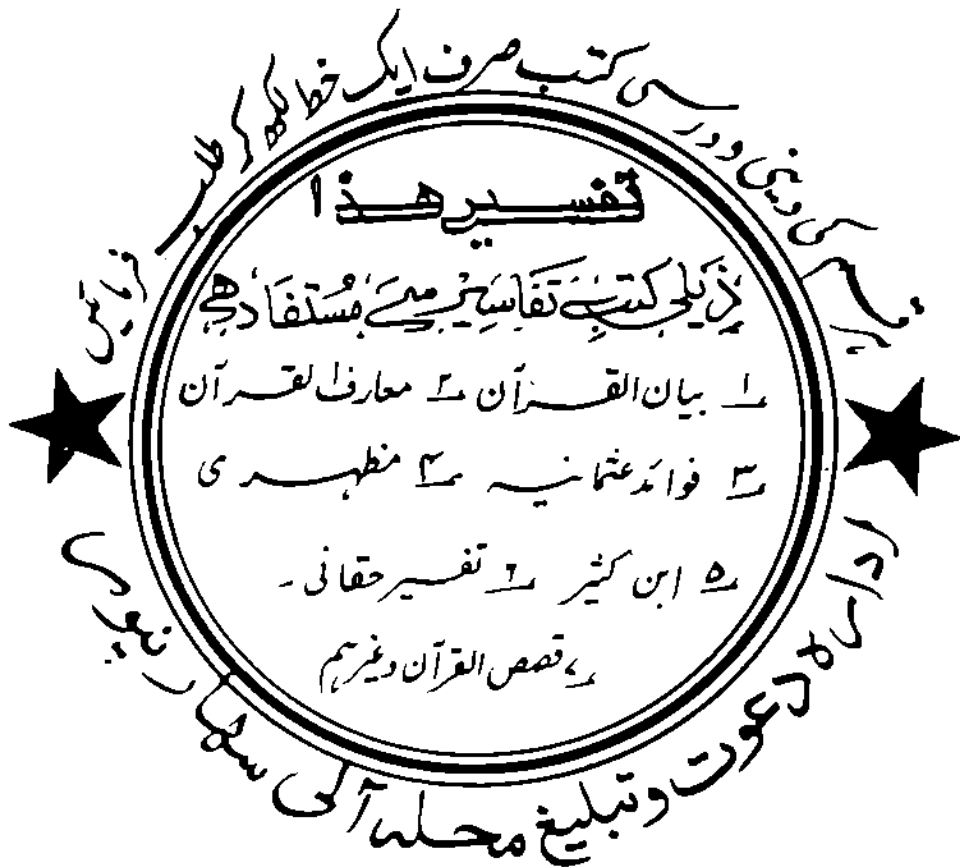 ہر قسم کی دینی و درسی کتب صرف ایک خط لکھ کر طلب فرمائیں
تفسیر ھذا
ذیلی کتب تفاسیر سے مستفاد ھے
۱ بیان القرآن ۲ معارف القرآن
۳ فوائد عثمانیہ ۴ مظہری
۵ ابن کثیر ۶ تفسیر حقانی ۔
۷ قصص القرآن وغیرہم
ادارہ دعوت و تبلیغ محلہ آلی سہارنپور